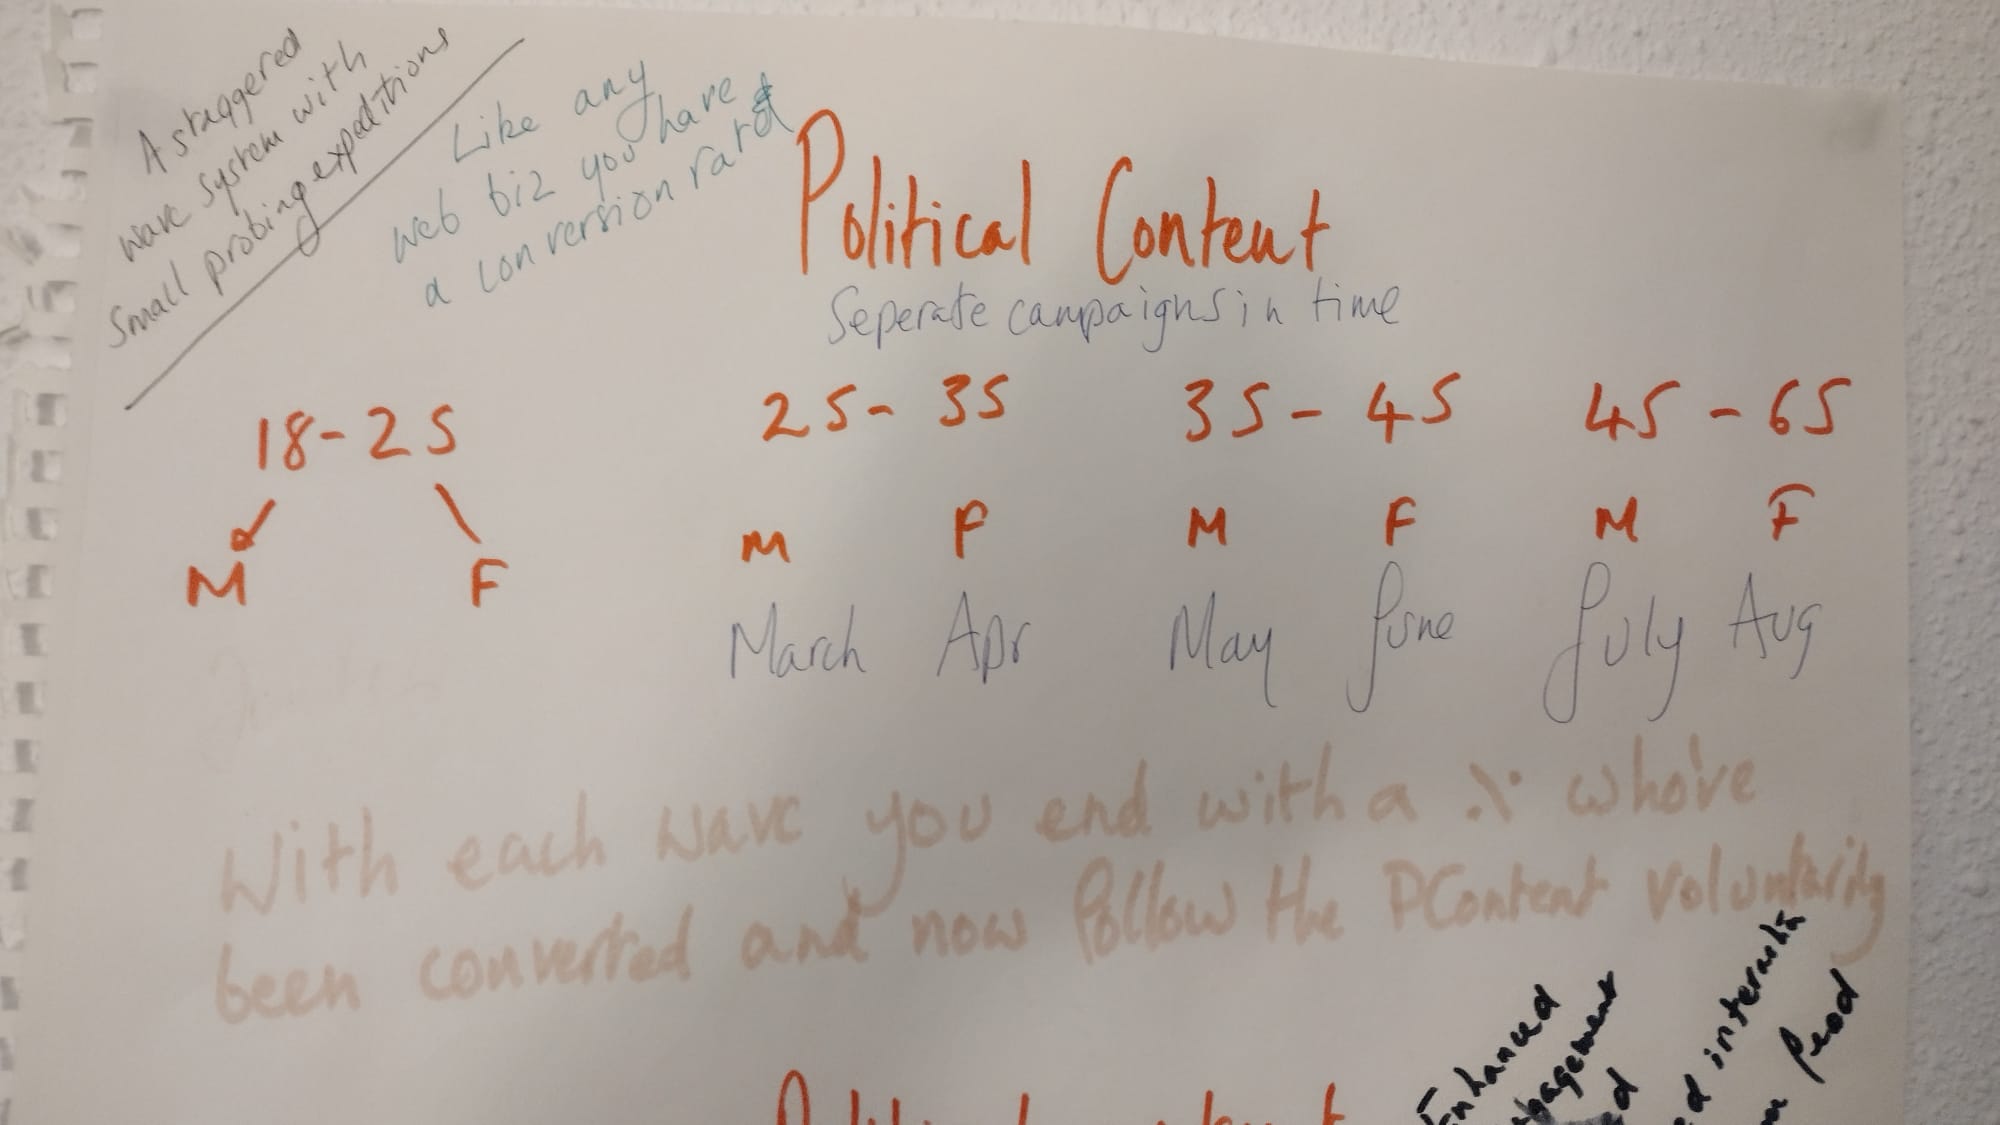 A staggered
wave system with
small probing expeditions
Like any
web biz you have
a conversion rate
Political Content
Seperate campaigns in time
18-25
25-35
35-45
45-65
M F
M F
M F
M F
March Apr
May June
July Aug
With each wave you end with a % who've
been converted and now follow the PContent voluntarily
Enhanced